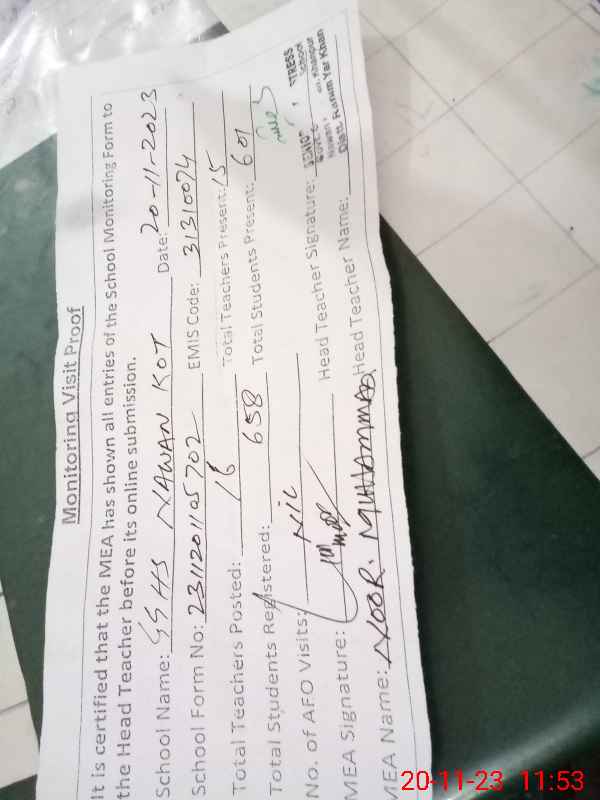 Monitoring Visit Proof
It is certified that the MEA has shown all entries of the School Monitoring Form to
the Head Teacher before its online submission.
School Name: GGHS NAWAN KOT Date: 20-11-2023
School Form No: 2311201105702 EMIS Code: 31310074
Total Teachers Posted: 16 Total Teachers Present: 15
Total Students Registered: 658 Total Students Present: 601
No. of AFO Visits: NIL
MEA Signature: Head Teacher Signature:
MEA Name: NOOR. MUHAMMAD Head Teacher Name:
School
Khanpur
Distt. Rahim Yar Khan
20-11-23 11:53